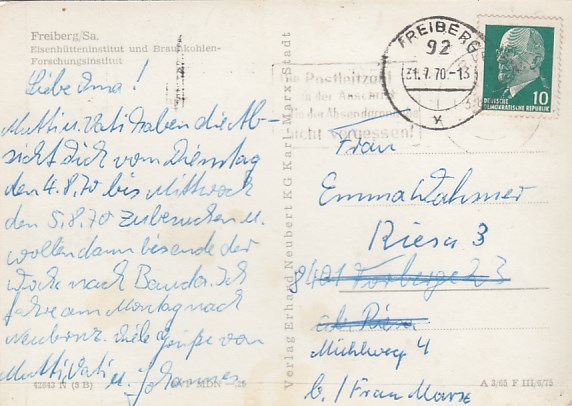 Freiberg/Sa.
Eisenhütteninstitut und Braunkohlen-
Forschungsinstitut
Liebe Oma!
Mutti u. Vati haben die Ab-
sicht Dich vom Dienstag
den 4.8.70 bis Mittwoch
den 5.8.70 zu besuchen u.
wollen dann bis ende der
Woche nach Bauda. Ich
fahre am Montag nach
Viele Grüße von
Mutti Vati
u. Johannes
42642 N (3 B) MDN -,25
Verlag Erhard Neubert KG Karl-Marx-Stadt
FREIBERG
92
31.7.70.-13
Postleitzahl
in der Anschrift
in der Absenderangabe
nicht vergessen!
DEUTSCHE
DEMOKRATISCHE REPUBLIK
10
Frau
Emma Dahmer
Riesa 3
8401 Vorberge 23
ü. Riesa
Mühlweg 4
b./ Frau Marx
A 3/65 F III/6/73